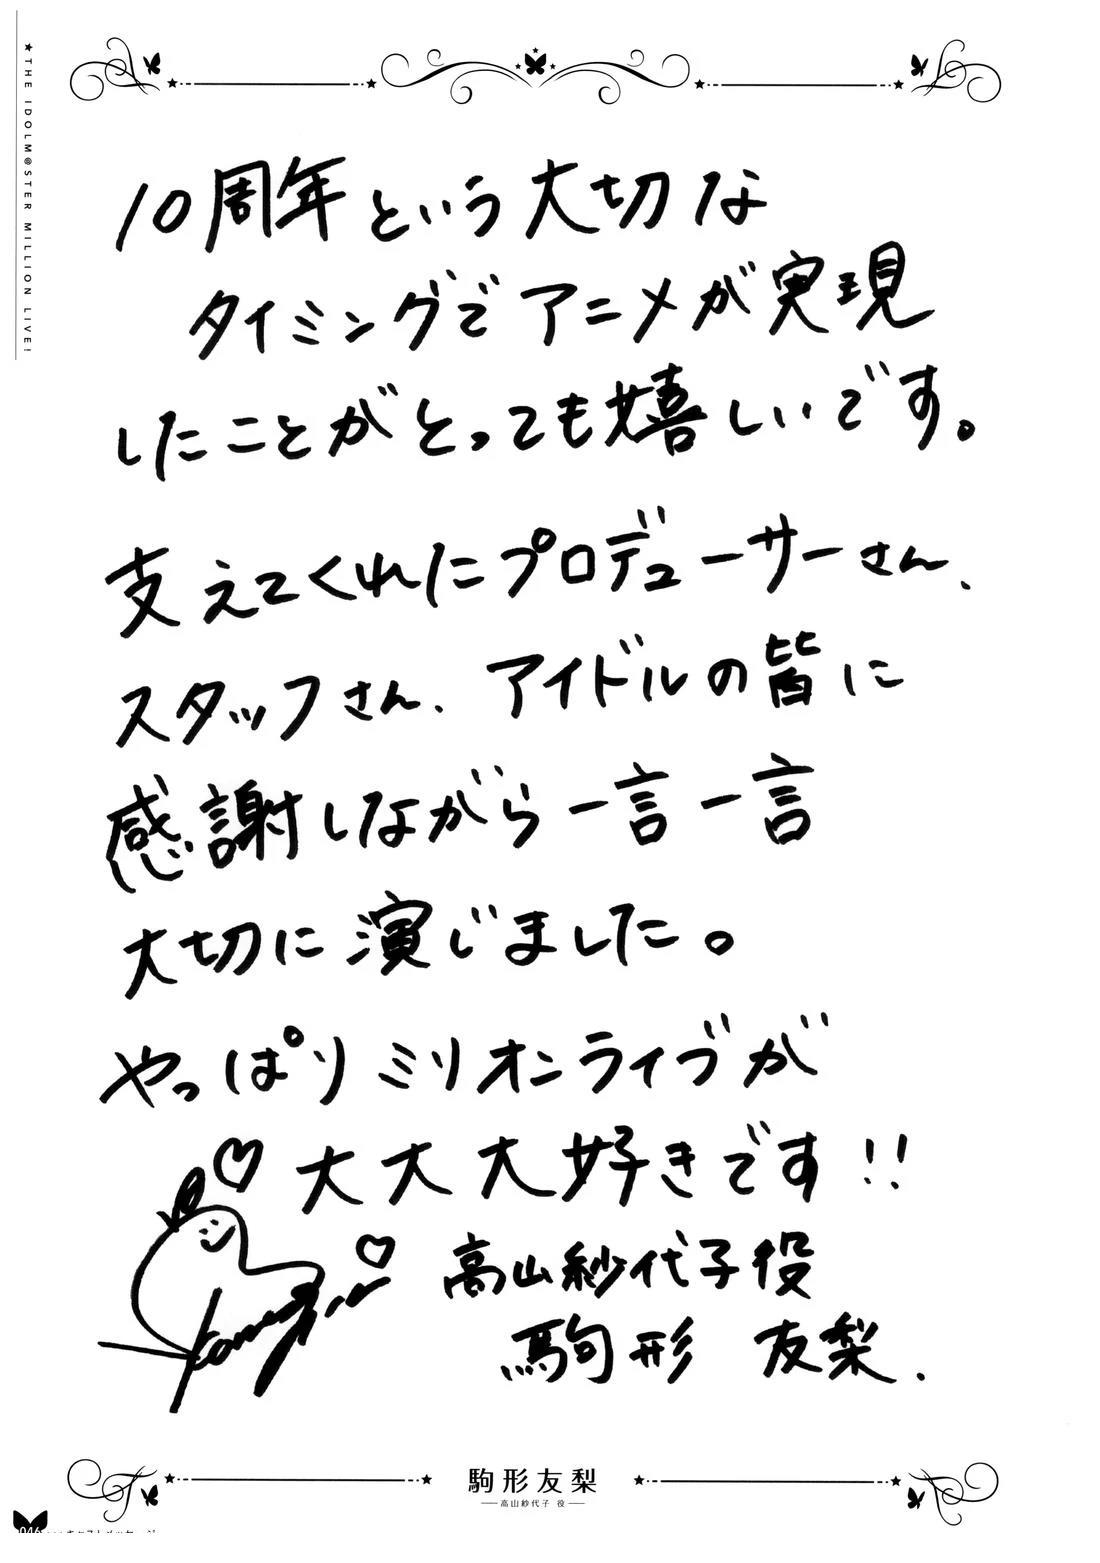 ★THE IDOLM@STER MILLION LIVE!
10周年という大切な
タイミングでアニメが実現
したことがとっても嬉しいです。
支えてくれたプロデューサーさん、
スタッフさん、アイドルの皆に
感謝しながら一言一言
大切に演じました。
やっぱりミリオンライブが
大大大好きです!!
高山紗代子役
駒形 友梨.
駒形友梨
高山紗代子 役